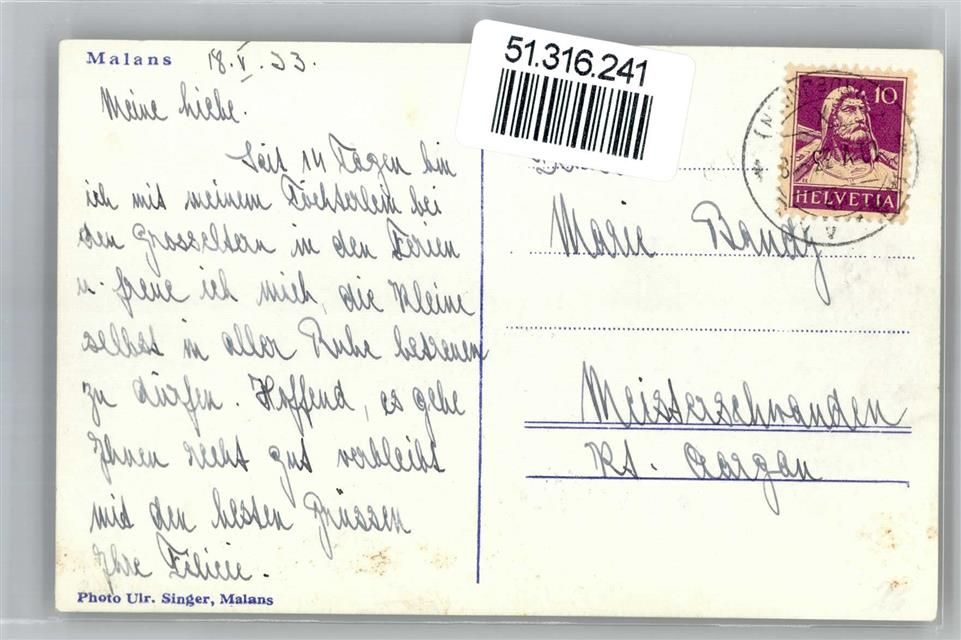 Malans 18.V.33.
Meine Liebe.
Seit 14 Tagen bin
ich mit meinem Töchterlein bei
den Grosseltern in den Ferien
u. freue ich mich, die Kleine
selbst in aller Ruhe betreuen
zu dürfen. Hoffend, es gehe
Ihnen recht gut verbleibt
mit den besten Grüssen
Ihre Felicie.
Photo Ulr. Singer, Malans
51.316.241
10
HELVETIA
Marie Bandy
Meisterschwanden
Kt. Aargau